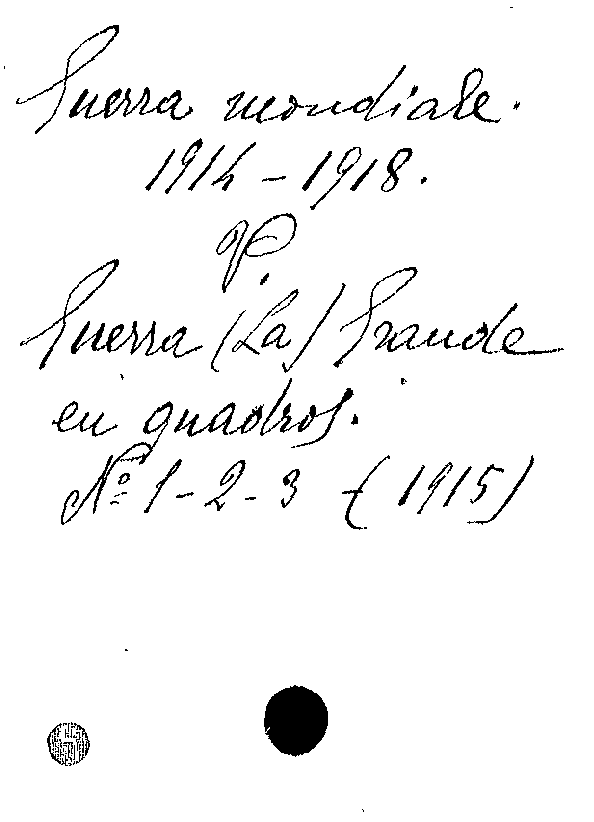 Guerra mondiale.
1914 - 1918.
P.
Guerra (La) Grande
en quadros.
Nº 1 - 2 - 3 - (1915)